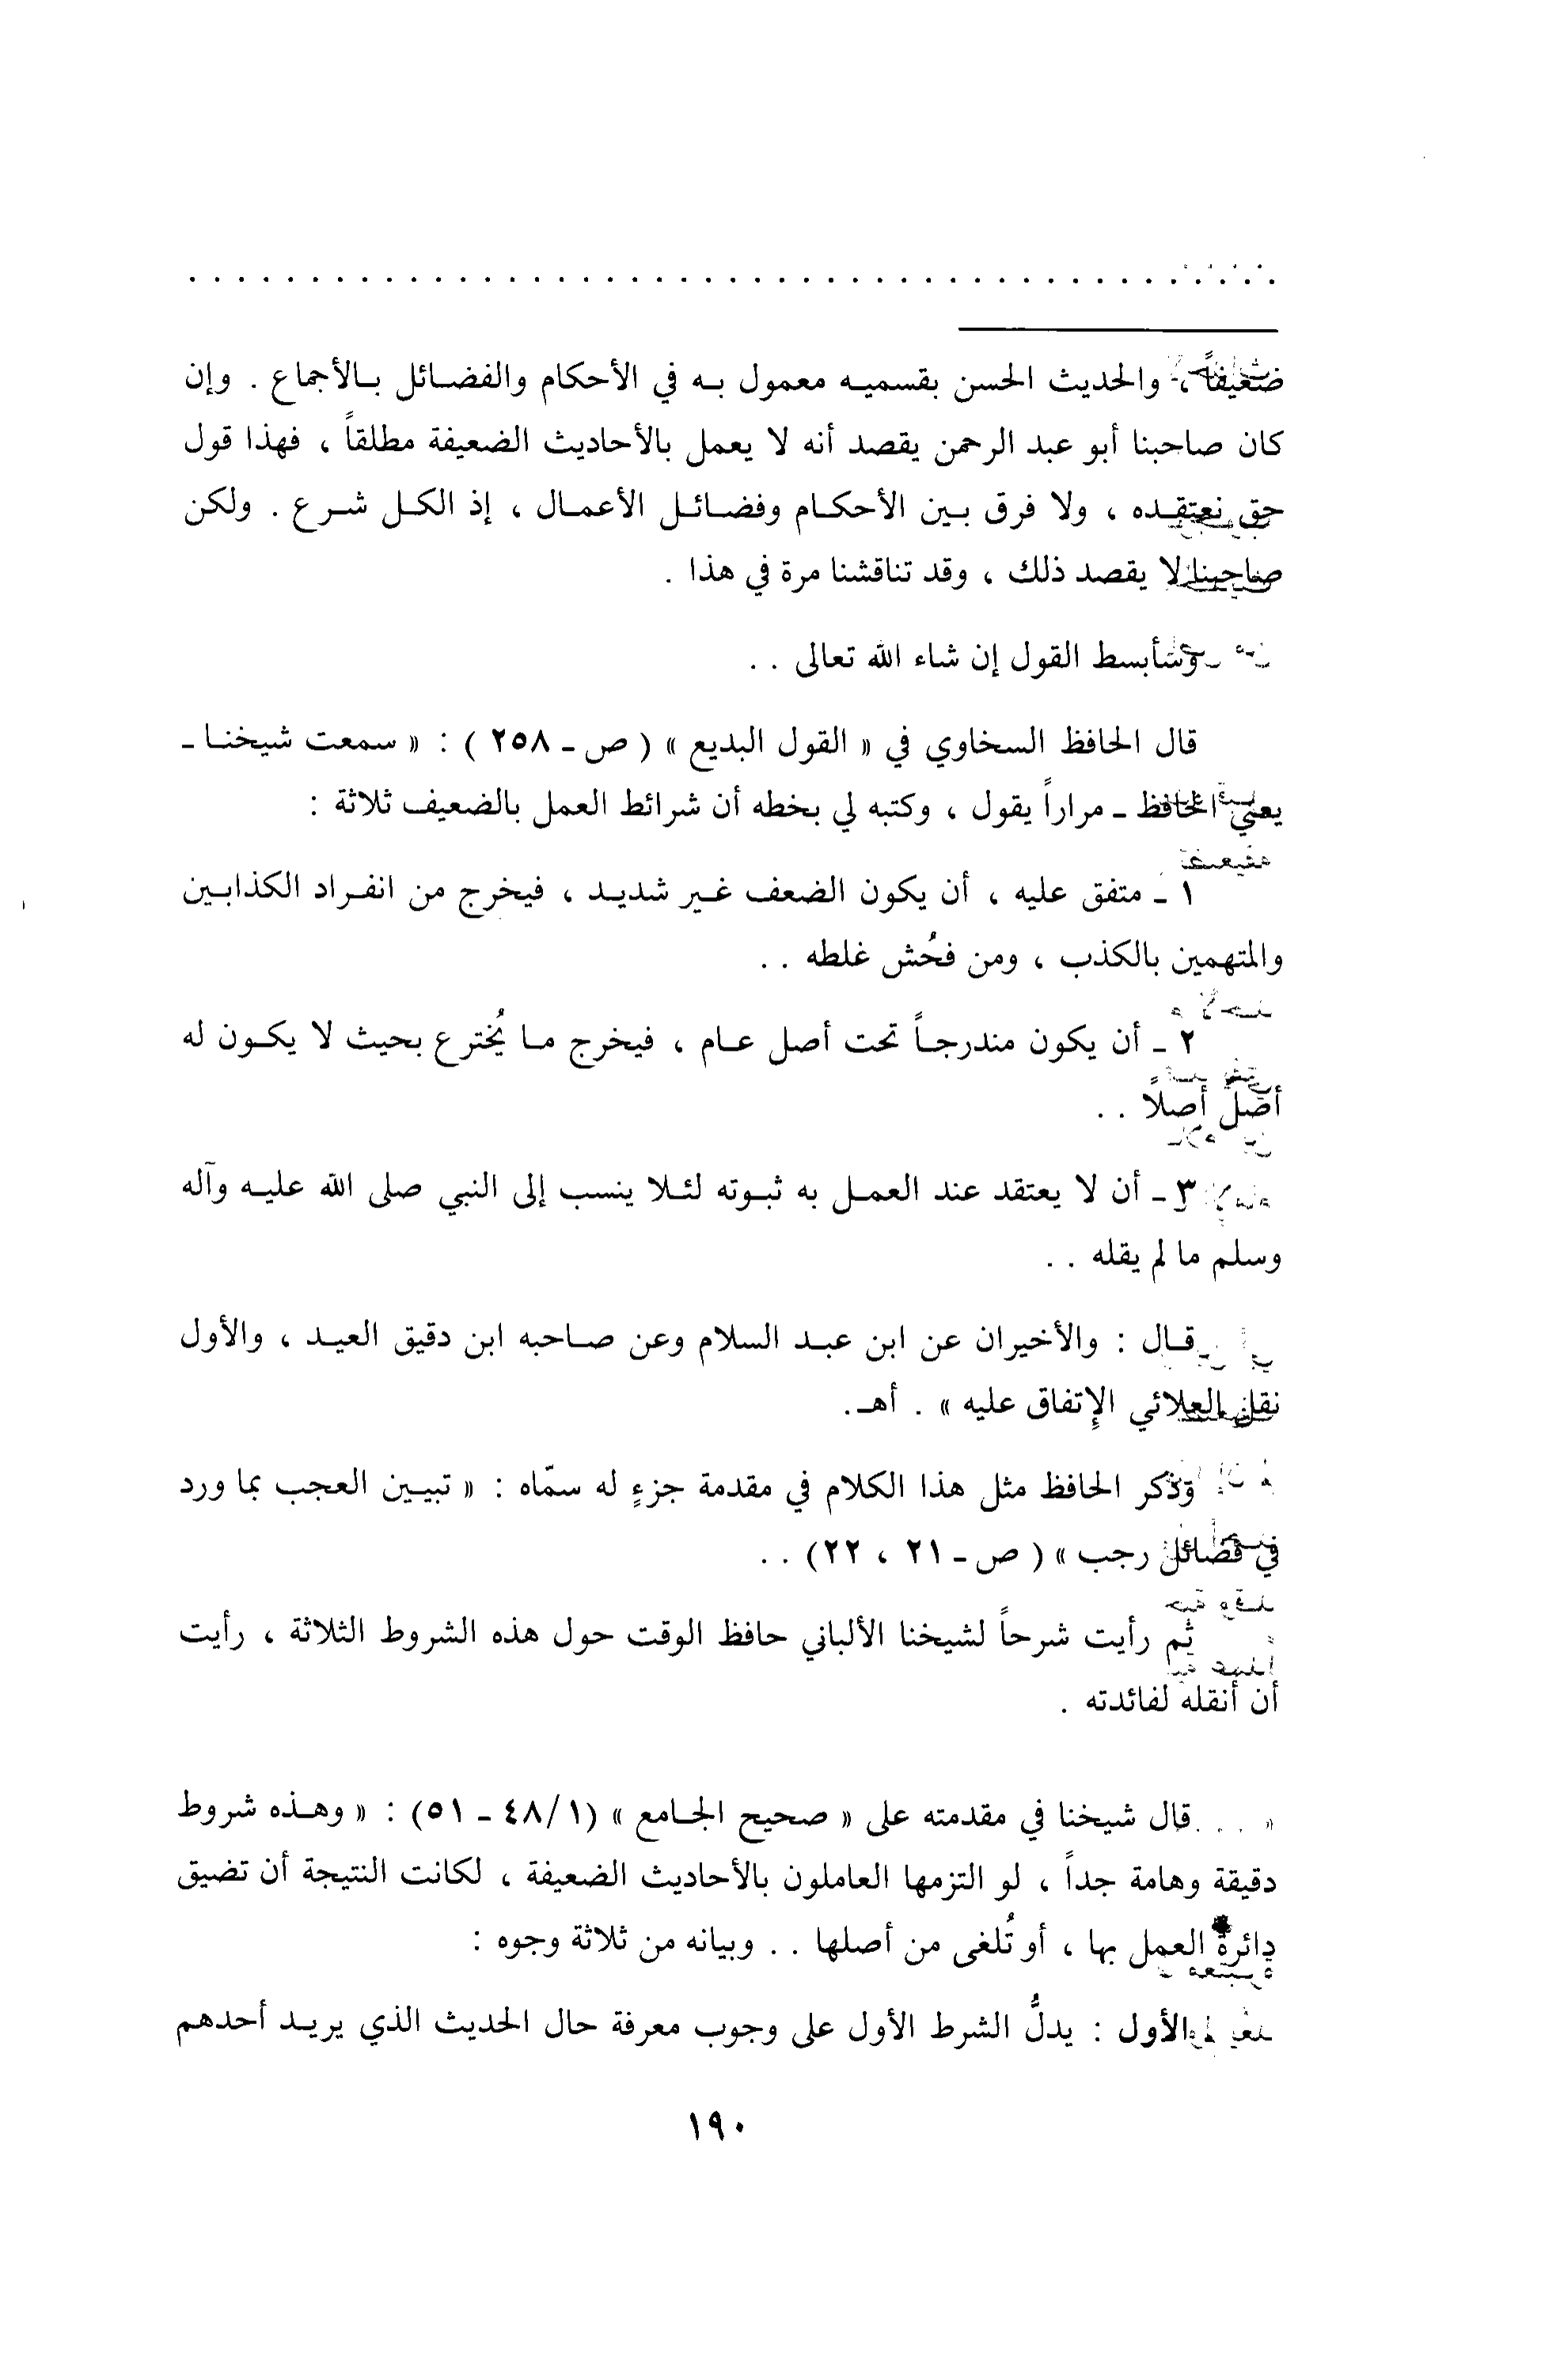 . . . . . . . . . . . . . . . . . . . . . . . . . . . . . . . . . . . . . . . . . . . . .
ضعيفاً ، والحديث الحسن بقسميه معمول به في الأحكام والفضائل بالأجماع . وإن
كان صاحبنا أبو عبد الرحمن يقصد أنه لا يعمل بالأحاديث الضعيفة مطلقاً ، فهذا قول
حق نعتقده ، ولا فرق بين الأحكام وفضائل الأعمال ، إذ الكل شرع . ولكن
صاحبنا لا يقصد ذلك ، وقد تناقشنا مرة في هذا .
وسأبسط القول إن شاء الله تعالى . .
قال الحافظ السخاوي في « القول البديع » ( ص ـ ٢٥٨ ) : « سمعت شيخنا ـ
يعني الحافظ ـ مراراً يقول ، وكتبه لي بخطه أن شرائط العمل بالضعيف ثلاثة :
١ ـ متفق عليه ، أن يكون الضعف غير شديد ، فيخرج من انفراد الكذابين
والمتهمين بالكذب ، ومن فحُش غلطه . .
٢ ـ أن يكون مندرجاً تحت أصل عام ، فيخرج ما يُخترع بحيث لا يكون له
أصل أصلاً . .
٣ ـ أن لا يعتقد عند العمل به ثبوته لئلا ينسب إلى النبي صلى الله عليه وآله
وسلم ما لم يقله . .
قال : والأخيران عن ابن عبد السلام وعن صاحبه ابن دقيق العيد ، والأول
نقل العلائي الإتفاق عليه » . أهـ.
وذكر الحافظ مثل هذا الكلام في مقدمة جزءٍ له سمّاه : « تبيين العجب بما ورد
في فضائل رجب » ( ص ـ ٢١ ، ٢٢) . .
ثم رأيت شرحاً لشيخنا الألباني حافظ الوقت حول هذه الشروط الثلاثة ، رأيت
أن أنقله لفائدته .
قال شيخنا في مقدمته على « صحيح الجامع » (٤٨/١ ـ ٥١) : « وهذه شروط
دقيقة وهامة جداً ، لو التزمها العاملون بالأحاديث الضعيفة ، لكانت النتيجة أن تضيق
دائرة العمل بها ، أو تُلغى من أصلها . . وبيانه من ثلاثة وجوه :
الأول : يدلُّ الشرط الأول على وجوب معرفة حال الحديث الذي يريد أحدهم
١٩٠